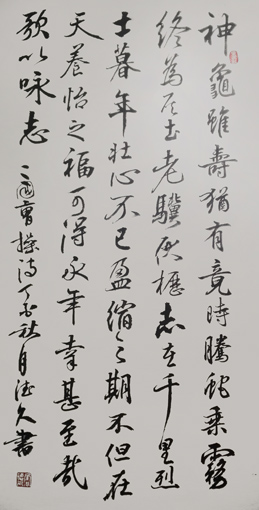 神龜雖壽猶有竟時騰蛇乘霧
終為灰土老驥伏櫪志在千里烈
士暮年壯心不已盈縮之期不但在
天養怡之福可得永年幸甚至哉
歌以咏志
三國曹操詩丁酉秋月德久書